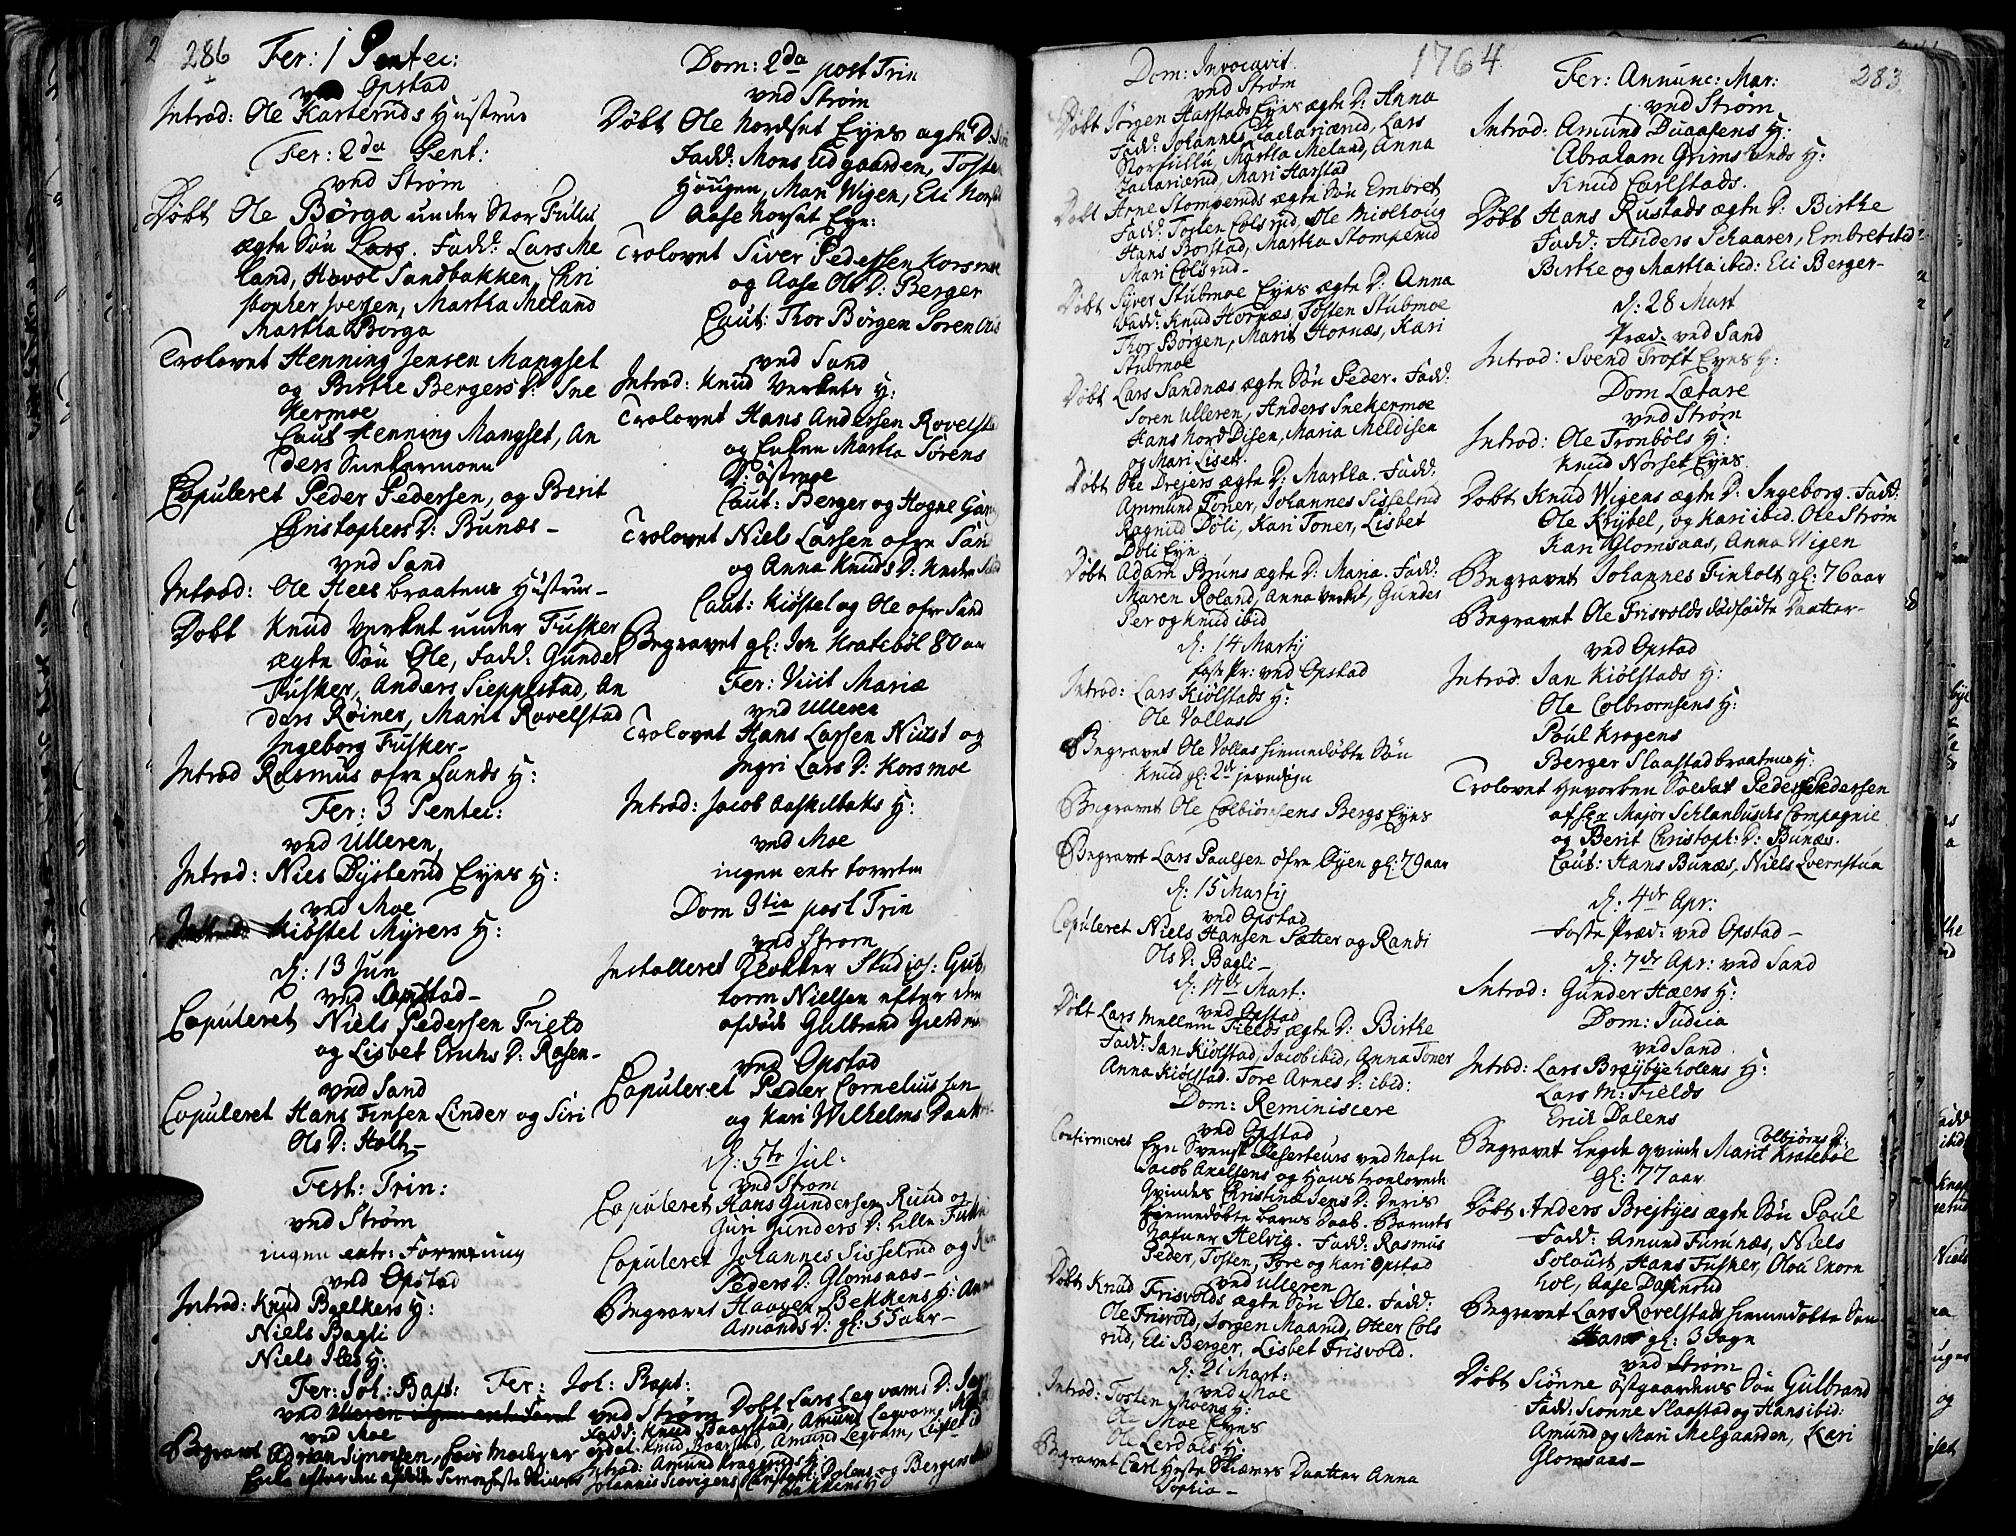 286
Fer: 1 Pentec:
ved Opstad
Introd: Ole Karteruds Hustrue
Fer: 2da Pent:
ved Strøm
Døbt Ole Børga under Stor Fulle
ægte Søn Lars. Fadd: Lars Me
land, Havol Sandbakken, Chri
stopher Iversen, Martha Meland
Martha Borga
Trolovet Henning Jensen Mangset
og Birthe Bergers D: Sne
kermoe
Caut Henning Mangset, An
ders Snekermoen
Copuleret Peder Pedersen, og Berit
Christophers D: Bunæs -
ved Sand
Introd: Ole Heer braatens Hustrue -
Døbt Knud Verket under Fusker
ægte Søn Ole, Fadd: Gunder
Fusker, Anders Sieppestad, An
ders Røiner, Marit Rovelstad
Ingeborg Fusker -
Introd Rasmus ofre Sands H:
Fer: 3 Pentec:
ved Ulleren
Introd: Niels Dysterud Eyes H:
ved Moe
Kiøstel Myrers H:
d: 13 Jun
ved Opstad -
Copuleret Niels Pedersen Field
og Lisbet Erichs D: Rosen -
ved Sand
Copuleret Hans Finsen Linder og Siri
Ols D: Holt -
Fest: Trin:
ved Strøm
ingen extr: Forretning
ved Opstad
Introd: Knud Bælkers H:
Niels Bagli
Niels Iles H:
Fer: Joh: Bapt:
ved Ulleren ingen extr Forret
ved Moe
Begravet Adrian Simonsen,
Dom: 2da post Trin
ved Strøm
Døbt Ole Nordset Eyes ægte D:
Fadd: Mons Udgaarden, Tosten
Hougen, Mari Wigen, Eli Nors
Aase Norset Eye:
Trolovet Siver Pedersen Korsmoe
og Aase Ols D: Berger
Caut: Thor Børgen Soren
ved Sand
Introd: Knud Verkets H:
Trolovet Hans Andersen Rovelst
og Enken Martha Sørens
D: Østmoe
Caut: Berger og Hogne
Trolovet Niels Larsen ofre San
og Anna Knuds D: Nedre
Caut: Kiøstel og Ole ofre Sand
Begravet gl: Jon Kratebøl 80 aar
Fer: Visit Mariæ
ved Ulleren
Trolovet Hans Larsen Niust og
Ingri Lars D: Korsmoe
Introd: Jacob Aaskilbaks H:
ved Moe
ingen extr forretn
Dom 3tia post Trin
ved Strøm
Installeret Klokker Studios: Gut
torm Nielsen efter den
afdøde Gulbrand
ved Opstad
Copuleret Peder Corneliussen
og Kari Wilhelms Daatter
d: 5te Jul:
ved Strøm
Copuleret Hans Gundersen Ruud og
Guri Gunders D: Lille Fulle
Copuleret Johannes Sisselrud og
Peders D: Glomsaas -
Begravet Haagen Bekkens H: Anne
Amunds D: gl: 55 aar -
Fer: Joh: Bapt:
ved Strøm Døbt Lars Legvams D:
Fadd: Knud Baarstad, Amund Legvam,
1764
283
Dom: Invocavit.
ved Strøm
Døbt Jørgen Harstads Eyes ægte D: Anna
Fadd: Johannes Zachariærud, Lars
Storfullu, Martha Meland, Anna
Zachariærud, Mari Harstad
Døbt Arne Stomperuds ægte Søn Embret
Fadd: Tosten Colsrud, Ole Miolhoug
Hans Borstad, Martha Stomperud
Mari Colsrud -
Døbt Syver Stubmoe Eyes ægte D: Anna
Fadd: Knud Hornæs, Tosten Stubmoe
Thor Børgen, Marit Hornæs, Kari
Stubmoe
Døbt Lars Sandnæs ægte Søn Peder. Fadd:
Soren Ulleren, Anders Snekermoe
Hans Nord Disen, Maria Meldisen
og Mari Liset.
Døbt Ole Drejers ægte D: Martha. Fadd:
Ammund Toner, Johannes Sisselrud
Ragnild Døli, Kari Toner, Lisbet
Døli Eye
Døbt Adam Bruns ægte D: Maria. Fadd:
Maren Roland, Anna Verket, Gunder
Per og Knud ibid
d: 14 Martij
faste Pr: ved Opstad
Introd: Lars Kiølstads H:
Ole Vollas
Begravet Ole Vollas hiemmedøbte Søn
Knud gl: 2de jevndøgn
Begravet Ole Colbiørnsens Bergs Eyes
Begravet Lars Paulsen øfre Øyen gl: 79 aar
d: 15 Martij
ved Opstad
Copuleret Niels Hansen Sætter og Randi
Ols D: Bagli -
d: 17de Mart:
ved Opstad
Døbt Lars mellem Fields ægte D: Birthe
Fadd: Jan Kiølstad, Jacob ibid, Anna Toner
Anna Kiølstad. Tore Arnes D: ibid:
Dom: Reminiscere
ved Opstad
Confirmeret Eyn Svensk Deserteurs ved Nafn
Jacob Axelsens og Hans troelovede
Qvindes Christinæ Jens D:
hiemmedøbte barns Daab. Barnets
Nafn er Helvig. Fadd: Rasmus
Peder, Tosten, Tore og Kari Opstad
ved Ulleren
Døbt Knud Frisvolds ægte Søn Ole. Fadd:
Ole Frisvold, Jørgen Maarud, Otter Cols
rud, Eli Berger, Lisbet Frisvold.
d: 21 Mart:
ved Moe
Introd: Tosten Moens H:
Ole Moe Eyes
Ole Lerdals H:
Begravet Carl Daatter Anna
Sophia -
Fer: Annunc: Mar:
ved Strøm
Introd: Amund Duaasens H:
Abraham Grimstands H:
Knud Carlstads.
Døbt Hans Rustads ægte D: Birthe
Fadd: Anders Schaarer, Embret ibid
Birthe og Martha ibid: Eli Berger -
d: 28 Mart
Præd: ved Sand
Introd: Svend Troft Eyes H:
Dom Lætare
ved Strøm
Introd: Ole Tronbøls H:
Knud Norset Eyes
Døbt Knud Wigens ægte D: Ingeborg. Fadd:
Ole Krybel, og Kari ibid. Ole Strøm
Kari Glomsaas, Anna Wigen
Begravet Johannes Finholt gl: 76 aar
Begravet Ole Frisvolds dødfødte Daatter -
ved Opstad
Introd Jan Kiølstads H:
Ole Colbiornsens H:
Poul Krogens
Berger Slaastad braatens H:
Trolovet Hverben Soldat Peder Pedersen
af Hr Major Schlanbuschs Compagnie
og Berit Christoph: D: Bunæs.
Caut: Hans Bunæs, Niels Evernstua
d: 4de Apr:
Faste Præd: ved Opstad -
d: 7de Apr: ved Sand
Introd: Gunder Haers H:
Dom: Judica
ved Sand
Introd: Lars Brøybyeholens H:
Lars M: Fields
Erich Dalens
Begravet Legde qvinde Marit Colbiørns D: Kratebøl
gl: 77 aar
Døbt Anders Brejbyes ægte Søn Poul
Fadd: Amund Furunæs, Niels
Solaust, Hans Fusker, Olou Ekorn
hol, Aase Dasserud
Begravet Lars Rovelstads hiemmedøbte Søn
Hans gl: 3 Dage
ved Strøm
Døbt Siønne Østgaardens Søn Gulbrand
Fadd: Sionne Slaastad og Hans ibid:
Amund og Mari Melgaarden, Kari
Glomsaas -